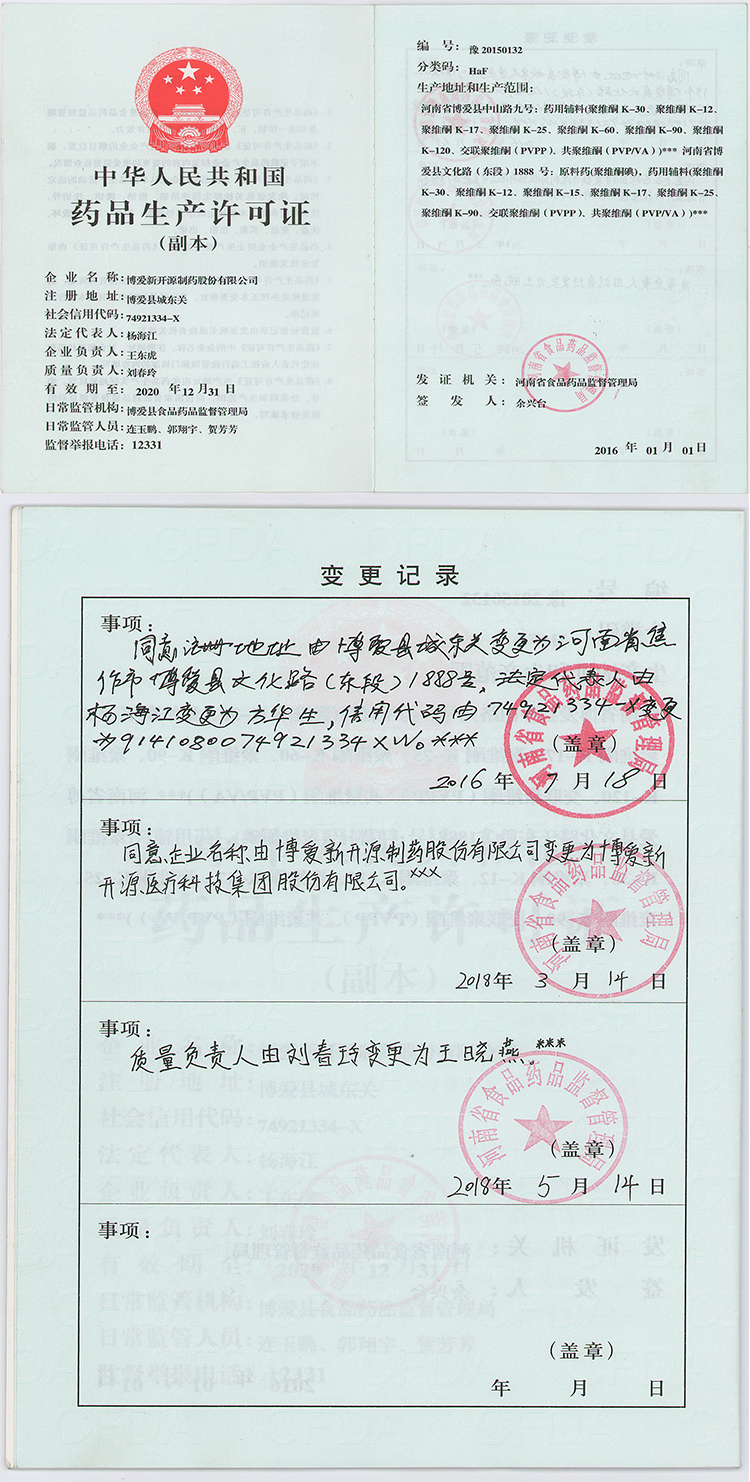 中华人民共和国
药品生产许可证
(副本)
企业名称：博爱新开源制药股份有限公司
注册地址：博爱县城东关
社会信用代码：74921334-X
法定代表人：杨海江
企业负责人：王东虎
质量负责人：刘春玲
有效期至：2020 年 12 月 31 日
日常监管机构：博爱县食品药品监督管理局
日常监管人员：连玉鹏、郭翔宇、贺芳芳
监督举报电话：12331
编号：豫 20150132
分类码：HaF
生产地址和生产范围：
河南省博爱县中山路九号：药用辅料(聚维酮 K-30、聚维酮 K-12、
聚维酮 K-17、聚维酮 K-25、聚维酮 K-60、聚维酮 K-90、聚维酮
K-120、交联聚维酮（PVPP）、共聚维酮（PVP/VA）)*** 河南省博
爱县文化路（东段）1888 号：原料药(聚维酮碘)，药用辅料(聚维酮
K-30、聚维酮 K-12、聚维酮 K-15、聚维酮 K-17、聚维酮 K-25、
聚维酮 K-90、交联聚维酮（PVPP）、共聚维酮（PVP/VA）)***
河南省食品药品监督管理局
发证机关：河南省食品药品监督管理局
签发人：余兴台
2016 年 01 月 01 日
变更记录
事项：
同意注册地址由博爱县城东关变更为河南省焦
作市博爱县文化路（东段）1888号，法定代表人由
杨海江变更为方华生，信用代码由74921334-X变更
为9141080074921334XW。***
河南省食品药品监督管理局
（盖章）
2016 年 7 月 18 日
事项：
同意企业名称由博爱新开源制药股份有限公司变更为博爱新
开源医疗科技集团股份有限公司。×××
河南省食品药品监督管理局
（盖章）
2018 年 3 月 14 日
事项：
质量负责人由刘春玲变更为王晓燕。***
河南省食品药品监督管理局
（盖章）
2018 年 5 月 14 日
事项：
（盖章）
年 月 日